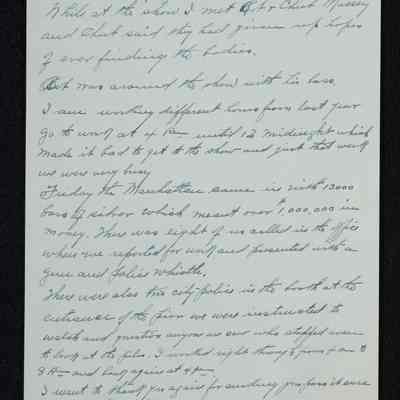 While at the show I met Pt & Chub Massey
and Chub said they had given up hopes
of ever finding the bodies.
But was around the show with his boss.
I am working different hours from last year
go to work at 4 Pm until 12 midnight which
made it bad to get to the show and just that week
we were very busy
Friday the Manhattan came in with 13000
bars of silver which meant over $1,000,000 in
money. There was eight of us called in the office
where we reported for work and presented with a
gun and police whistle.
There were also two city police in the booth at the
entrance of the pier we were instructed to
watch and question anyone we saw who stopped even
to look at the pile. I worked right through from 4 pm to
8 Am and back again at 4 pm
I want to thank you again for sending you pass it sure